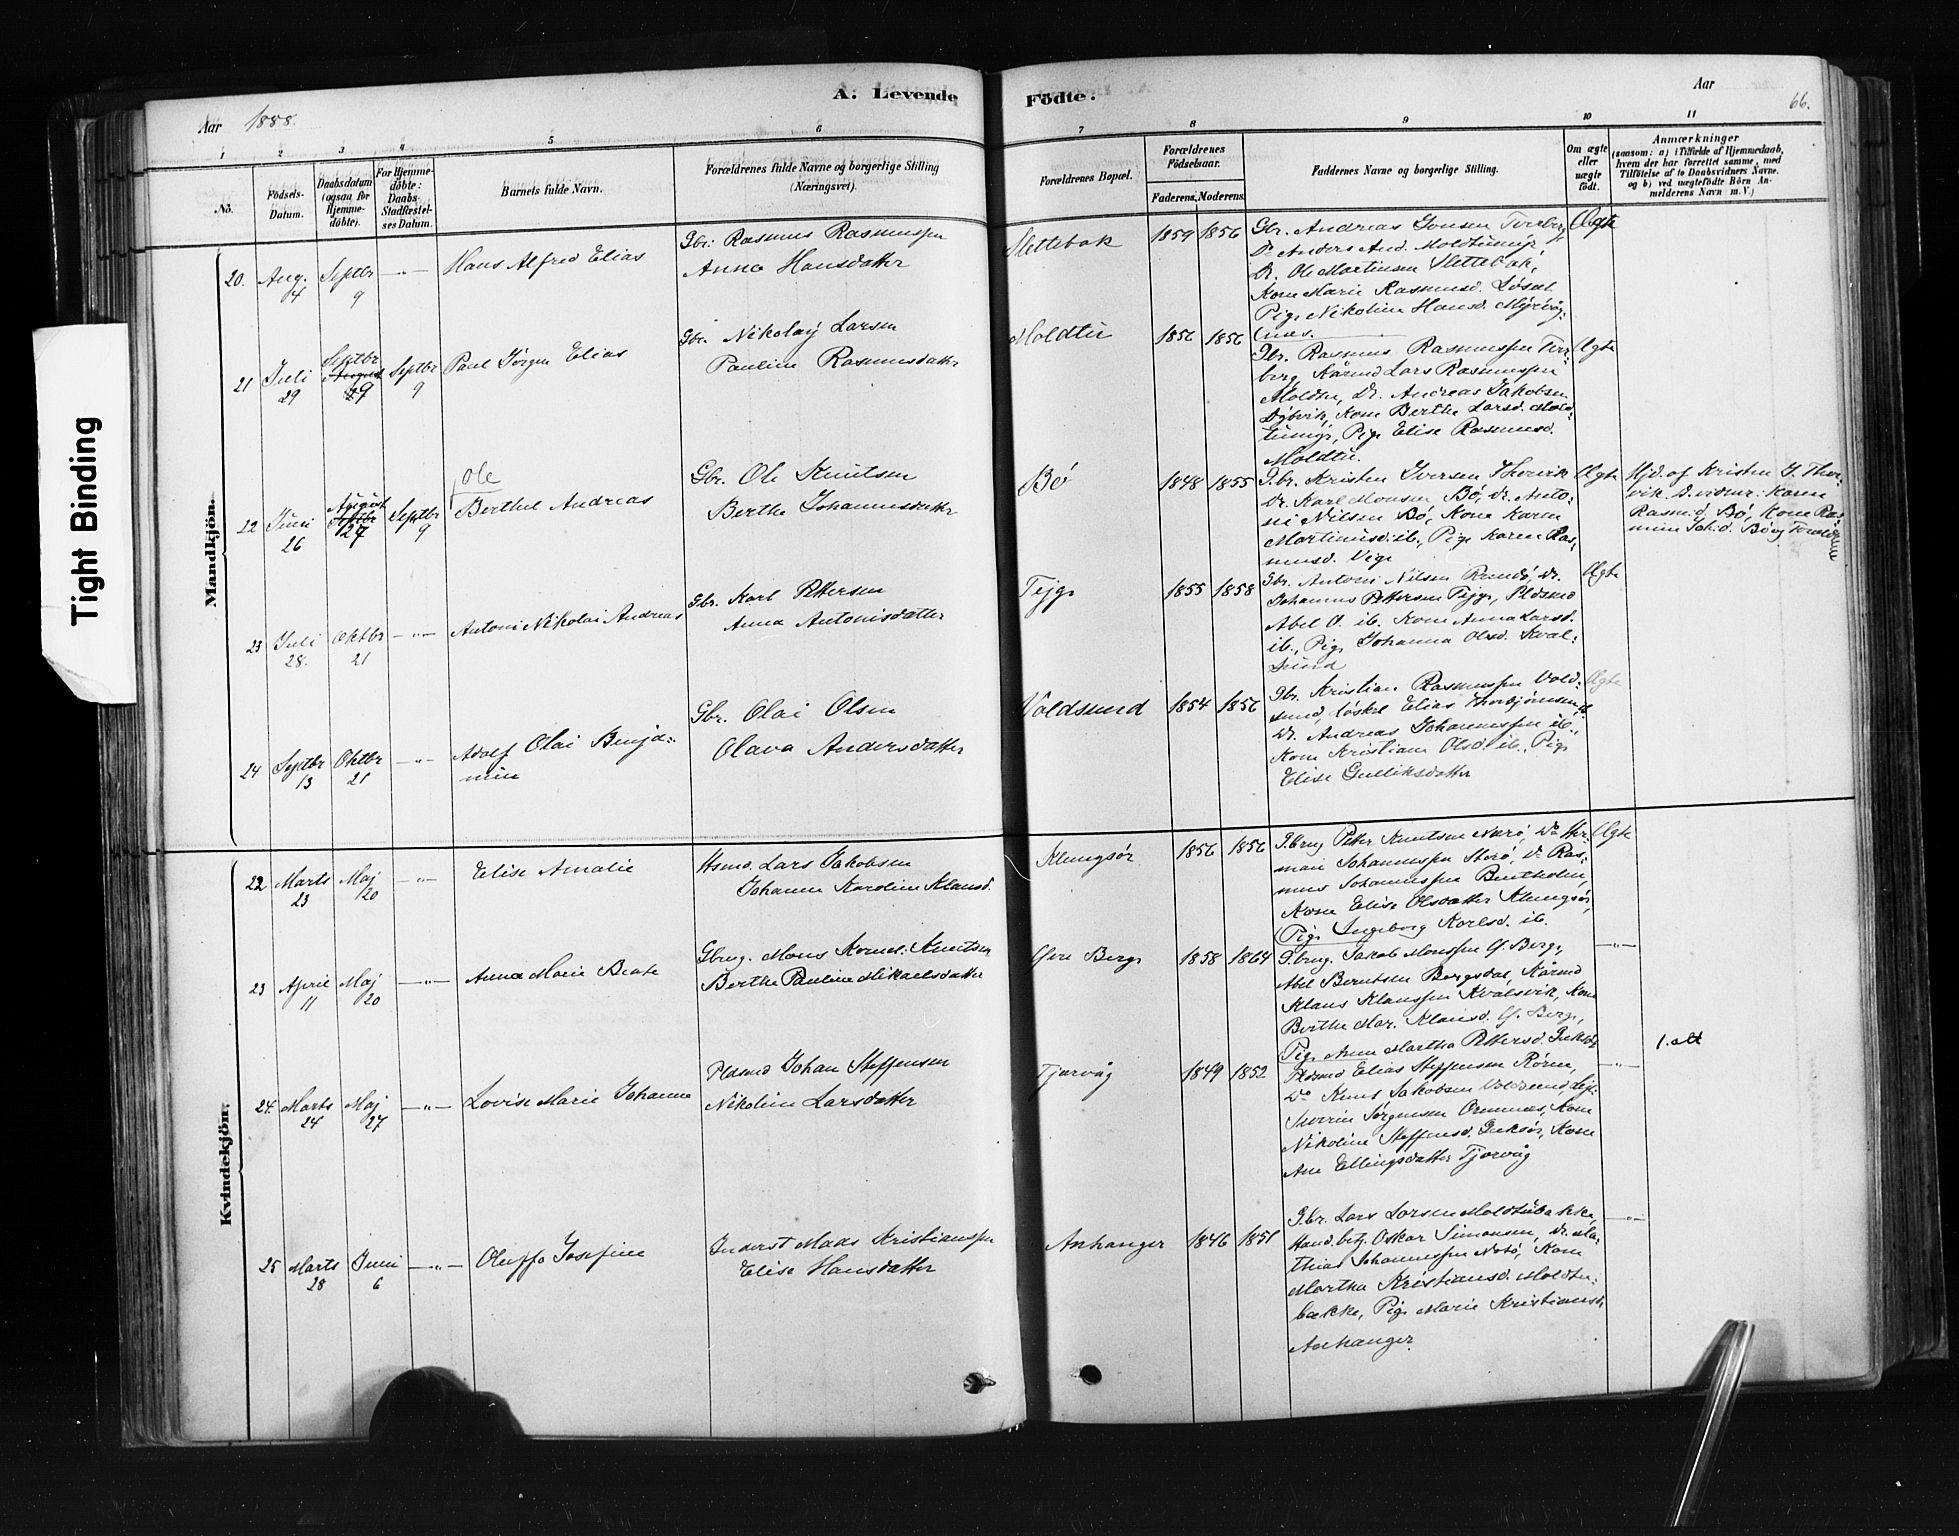 Tight Binding
A. Levende Fødte.
Aar 1888.
Aar
66.
1 2 3 4 5 6 7 8 9 10 11
No.
Födsels-
Datum.
Daabsdatum
(ogsaa for
Hjemme-
døbte).
For Hjemme-
döbte:
Daabs-
Stadfæstel-
ses Datum.
Barnets fulde Navn.
Forældrenes fulde Navne og borgerlige Stilling
(Næringsvei).
Forældrenes Bopæl.
Forældrenes
Födselsaar.
Faderens. Moderens.
Faddernes Navne og borgerlige Stilling.
Om ægte
eller
uægte
født.
Anmærkninger
(saasom: a) i Tilfælde af Hjemmedaab,
hvem der har forrettet samme, med
Tilföielse af to Daabsvidners Navne.
og b) ved uægtefödte Börn An-
melderens Navn m. V.)
Mandkjön.
20. Aug. 4 Septbr 9 -"- Hans Alfred Elias
Gbr. Rasmus Rasmussen
Anna Hansdatter
Slettebak 1859 1856
Gbr. Andreas Tverberg,
Dr. Anders And. Moldtunigs
Dr. Ole Martinsen Slettebak,
Kone Marie Rasmusd. Løset
Pige Nikoline Hansd. Myrvåg-
nes.
Ægte
21 Juli 29 Septbr August 29 Septbr 9 Paul Jørgen Elias
Gbr. Nikolay Larsen
Pauline Rasmusdatter
Moldtu 1856 1856
Gbr. Rasmus Rasmussen Tver-
berg Kårmd Lars Rasmussen
Moldtu, Dr. Andreas Jakobsen
Dybvik, Kone Berthe Larsd. Mold-
tunigs, Pige Elise Rasmusd.
Moldtu.
Ægte
22 Juni 26 August Septbr 27 Septbr 9 Ole Berthel Andreas
Gbr. Ole Knutsen
Berthe Johannesdatter
Bø 1848 1855
Gbr. Kristen Iversen Thorvik
Dr. Karl Monsen Bø, Dr. Anto-
ni Nilsen Bø, Kone Karen
Martinusd. ib., Pige Karen Ras-
musd. Vige
Ægte
Hjd. af Kristen I. Thor-
vik. D.vidner: Karen
Rasm.d. Bø, Kone Ras-
mine Joh.d. Bø
23 Juli 28. Oktbr 21 -"- Antoni Nikolai Andreas
Gbr. Karl Pettersen
Anna Antonisdatter
Teige 1855 1858
Gbr. Antoni Nilsen Rundø, Dr.
Johannes Pettersen Teige, Pldsmd
Abel O. ib. Kone Anna Larsd.
ib., Pige Johanna Olsd. Kval-
sund
Ægte
24 Septbr 13 Oktbr 21 -"- Adolf Olai Benja-
min
Gbr. Olai Olsen
Olava Andersdatter
Voldsund 1854 1856
Gbr. Kristian Rasmussen Vold-
sund, Løskl Elias Thorbjørnsen,
Dr. Andreas Johannessen ib.,
Kone Kristiane Olsd. ib., Pige
Elise Gulliksdatter
Ægte
Kvindekjön.
22 Marts 23 Maj 20 -"- Elise Amalie
Hsmd. Lars Jakobsen
Johanne Karoline Klausd.
Klungsør 1856 1856
Gbrug Petter Knutsen Nærø, Do Her-
man Johannessen Storø, Dr. Ras-
mus Johannessen Bentholm,
Kone Elise Olsdatter Klungsør,
Pige Ingeborg Karlsd. ib.
Ægte
23 April 11 Maj 20 -"- Anna Marie Beate
Gbrug. Mons Kornel. Knutsen
Berthe Pauline Mikaelsdatter
Øvre Berge 1858 1864
Gbrug. Jacob Monssen Ø. Berge,
Abel Berntsen Bergsdal, Kårmd
Klaus Klaussen Kvalsvik, Kone
Berthe Mar. Klausd. Ø. Berge,
Pige Anne Martha Pettersd.
-"-
24. Marts 24 Maj 27 -"- Lovise Marie Johanne
Pldsmd Johan Steffensen
Nikoline Larsdatter
Tjørvåg 1849 1852
Pldsmd Elias Steffensen Røren,
Do Knut Jakobsen Voldsund,
Severin Jørgensen Ormenes, Kone
Nikoline Steffensd. Gurskø, Kone
Ane Ellingsdatter Tjørvåg
-"-
1. alt
25 Marts 28 Juni 6 -"- Oluffa Josefine
Inderst Maas Kristianssen
Elise Hansdatter
Anhanger 1846 1851
Gbr. Lars Larsen Moldtubakke,
Hand.betj. Oskar Simonsen, Dr. Ma-
thias Johannessen Notø, Kone
Martha Kristiansd. Moldtu-
bakke, Pige Marie Kristiansd.
Anhanger.
-"-